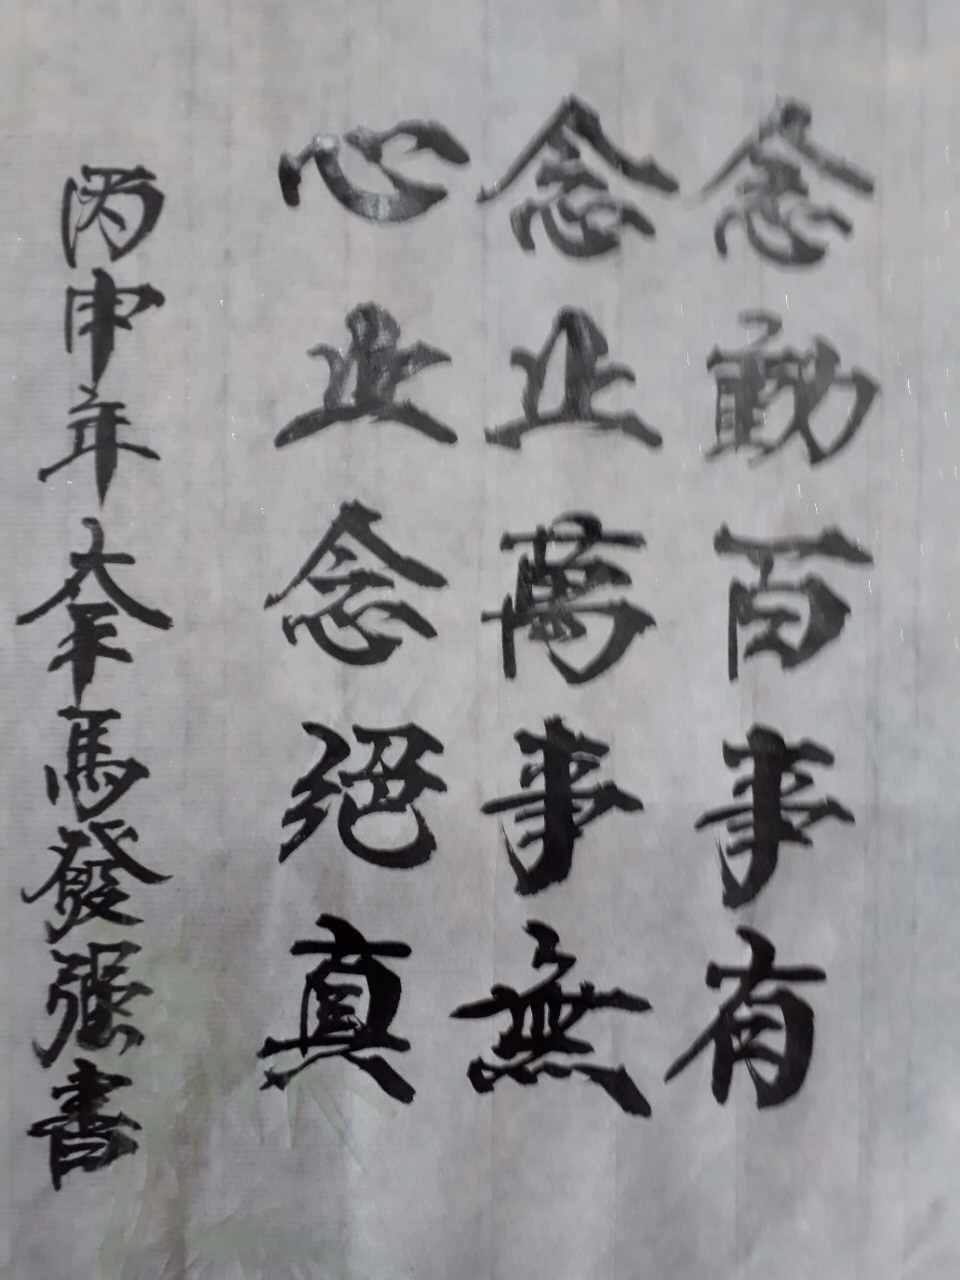 念動百事有
念止萬事無
心止念絕真
丙申年夆馬發強書